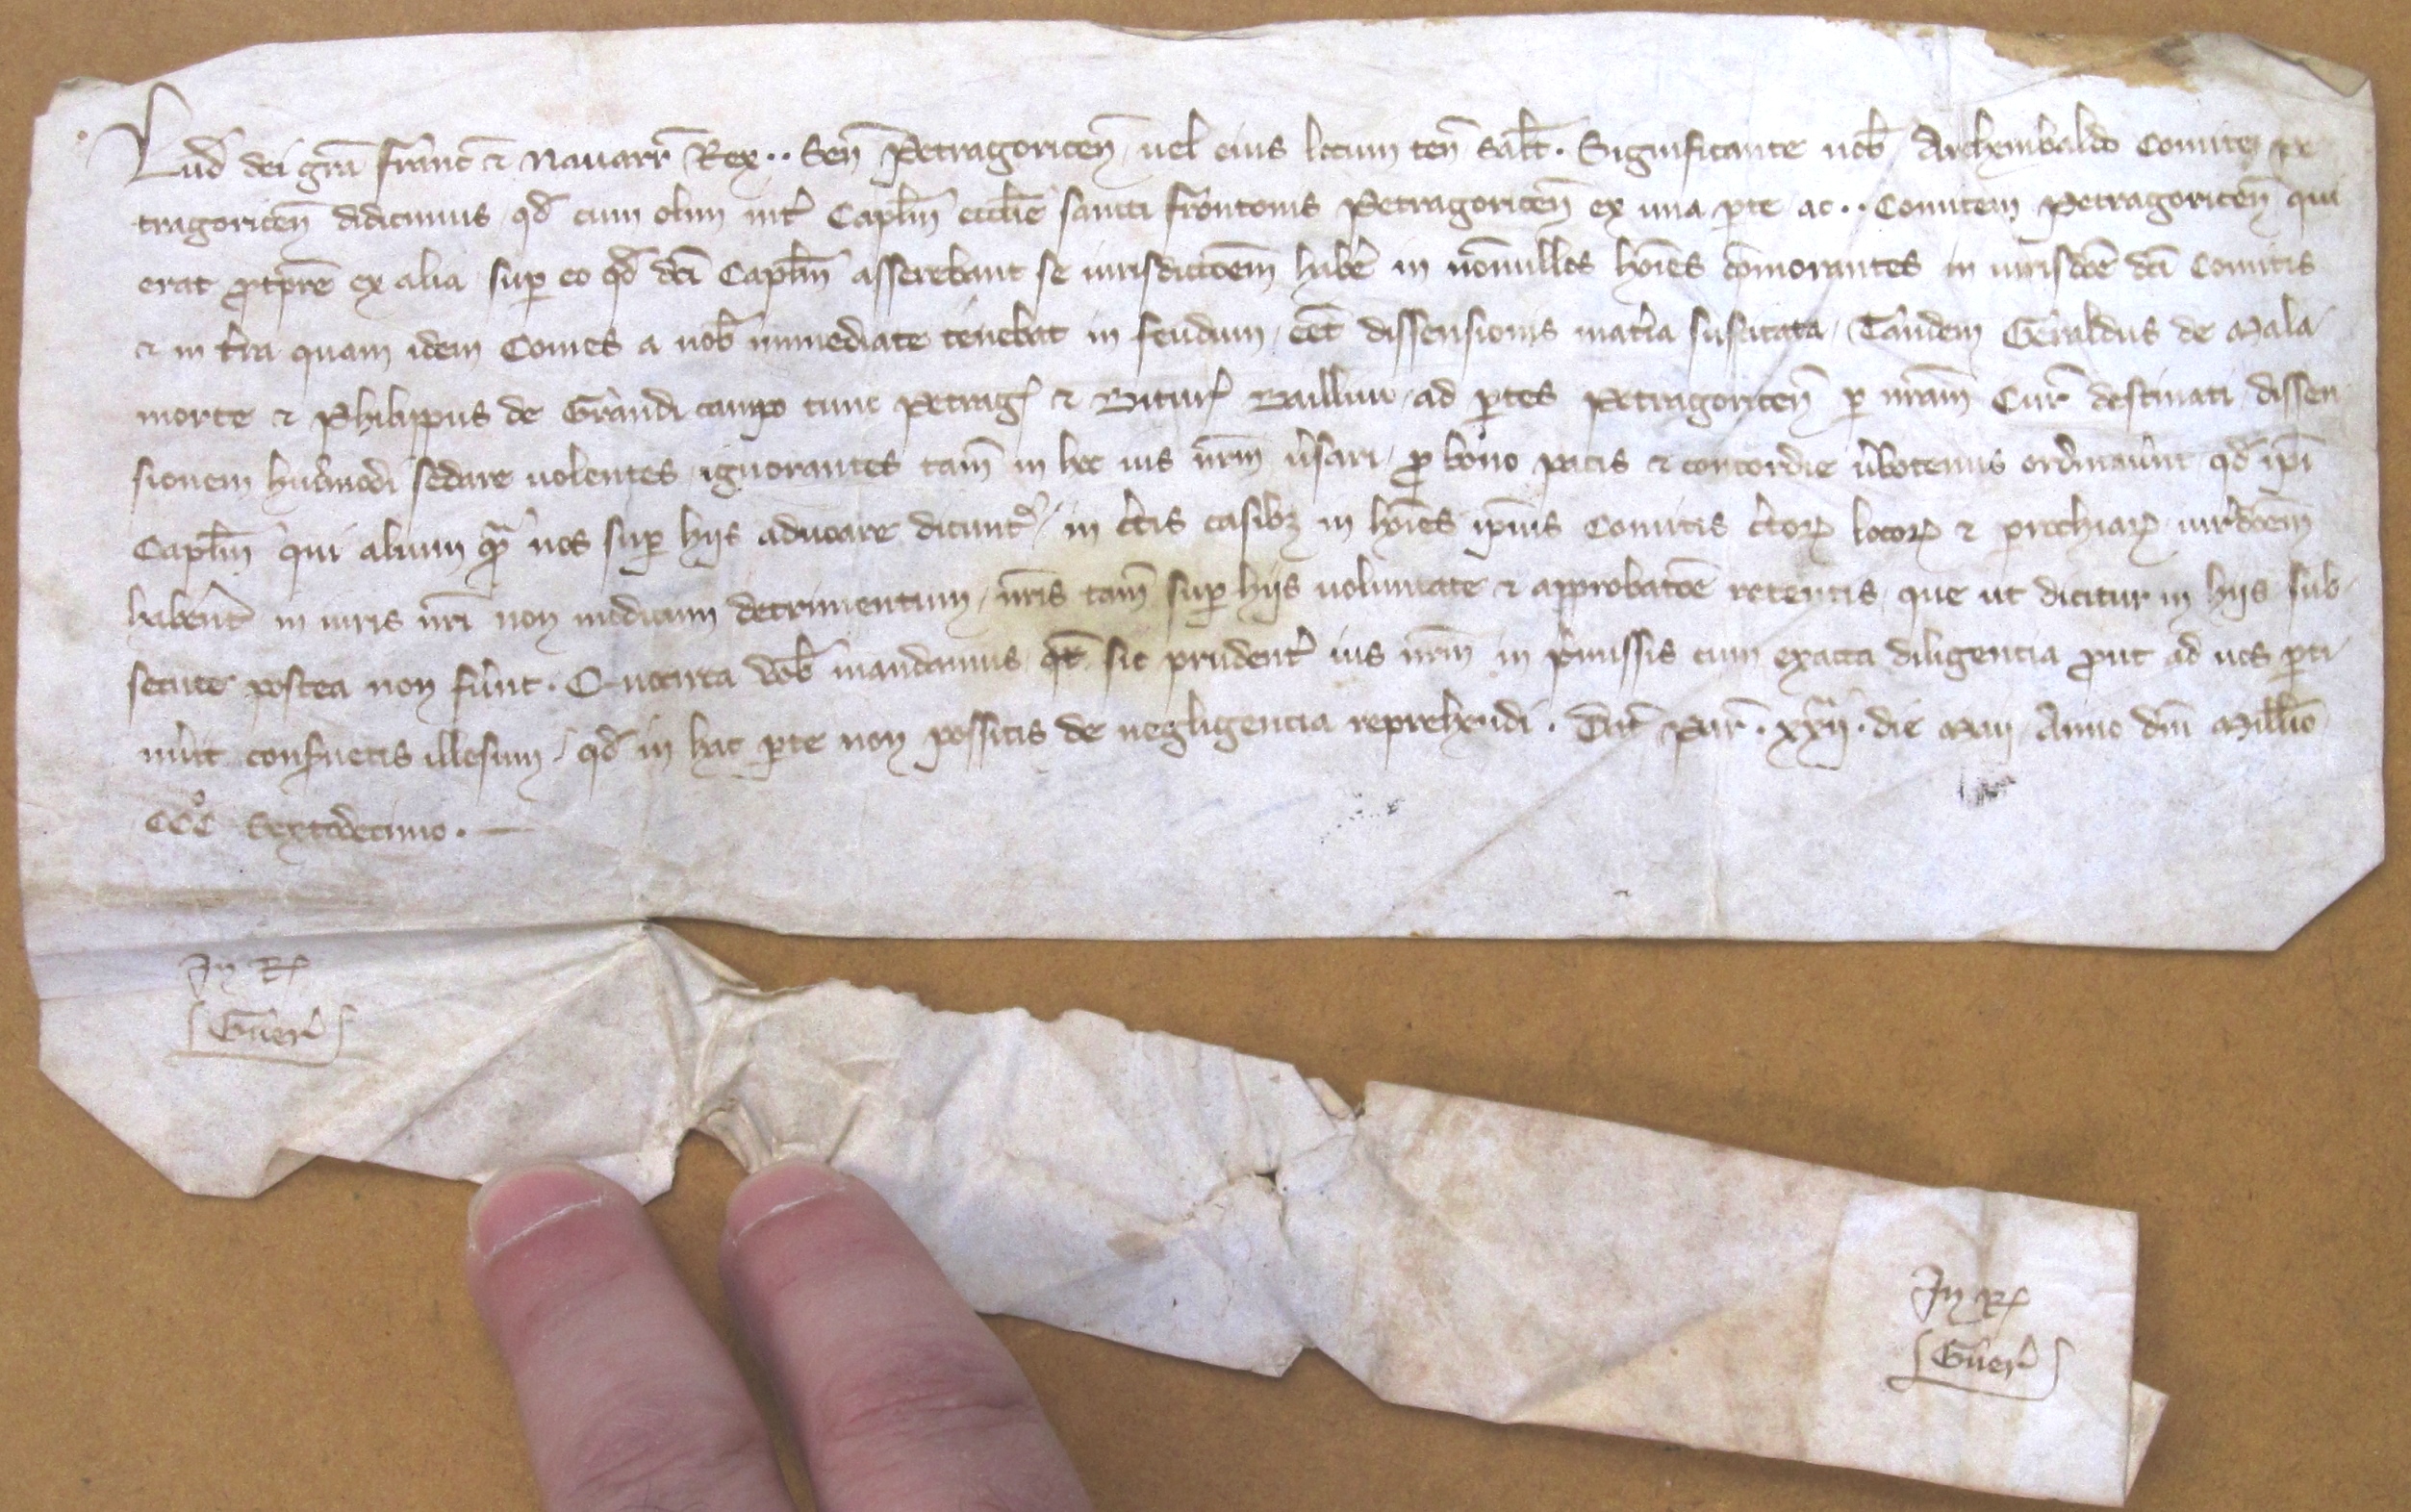 Lud dei gra Franc & Nauarr Rex ·· Sen Petragoricen uel eius locum ten salt · Significante nob Archembaldo Comite pe
tragoricen didicimus qd cum olim int Caplm ecclie sancti Frontonis Petragoricen ex una pte ac ·· Comitem Petragoricen qui
erat p tpre ex alia sup eo qd dci Caplm asserebant se iurisdictoem habe in nonnullos hoies comorantes in iurisdce dci Comitis
& in tra quam idem Comes a nob immediate tenebat in feudum eet dissensionis matia suscitata / Tandem Geraldus de Mala
morte & Philippus de Grandi campo tunc Petrag & Bitur Bailliui ad ptes Petragoricen p nram Cur destinati dissen
sionem huiusmodi sedare uolentes ignorantes tam in hoc ius nrm usari / p bono pacis & concordie ubotenus ordinaunt qd ipi
Caplm qui alium qm nos sup hiis aduoare dicunt / in ctis casibz in hoies ipius Comitis ctor locor & prochiar iurdcoem
habent in iuris nri non modicum detrimentum / nris tam sup hiis uoluntate & approbatoe retentis que ut dicitur in hiis sub
secute postea non funt · Quocirca uob mandamus qt sic prudent ius nrm in pmissis cum exacta diligencia put ad uos pti
nuit conseruetis illesum / qd in hac pte non possitis de negligencia reprehendi · Dat Par · xxii · die Maii Anno dni Millio
CCC sextodecimo ·
In R
Guer
In R
Guer